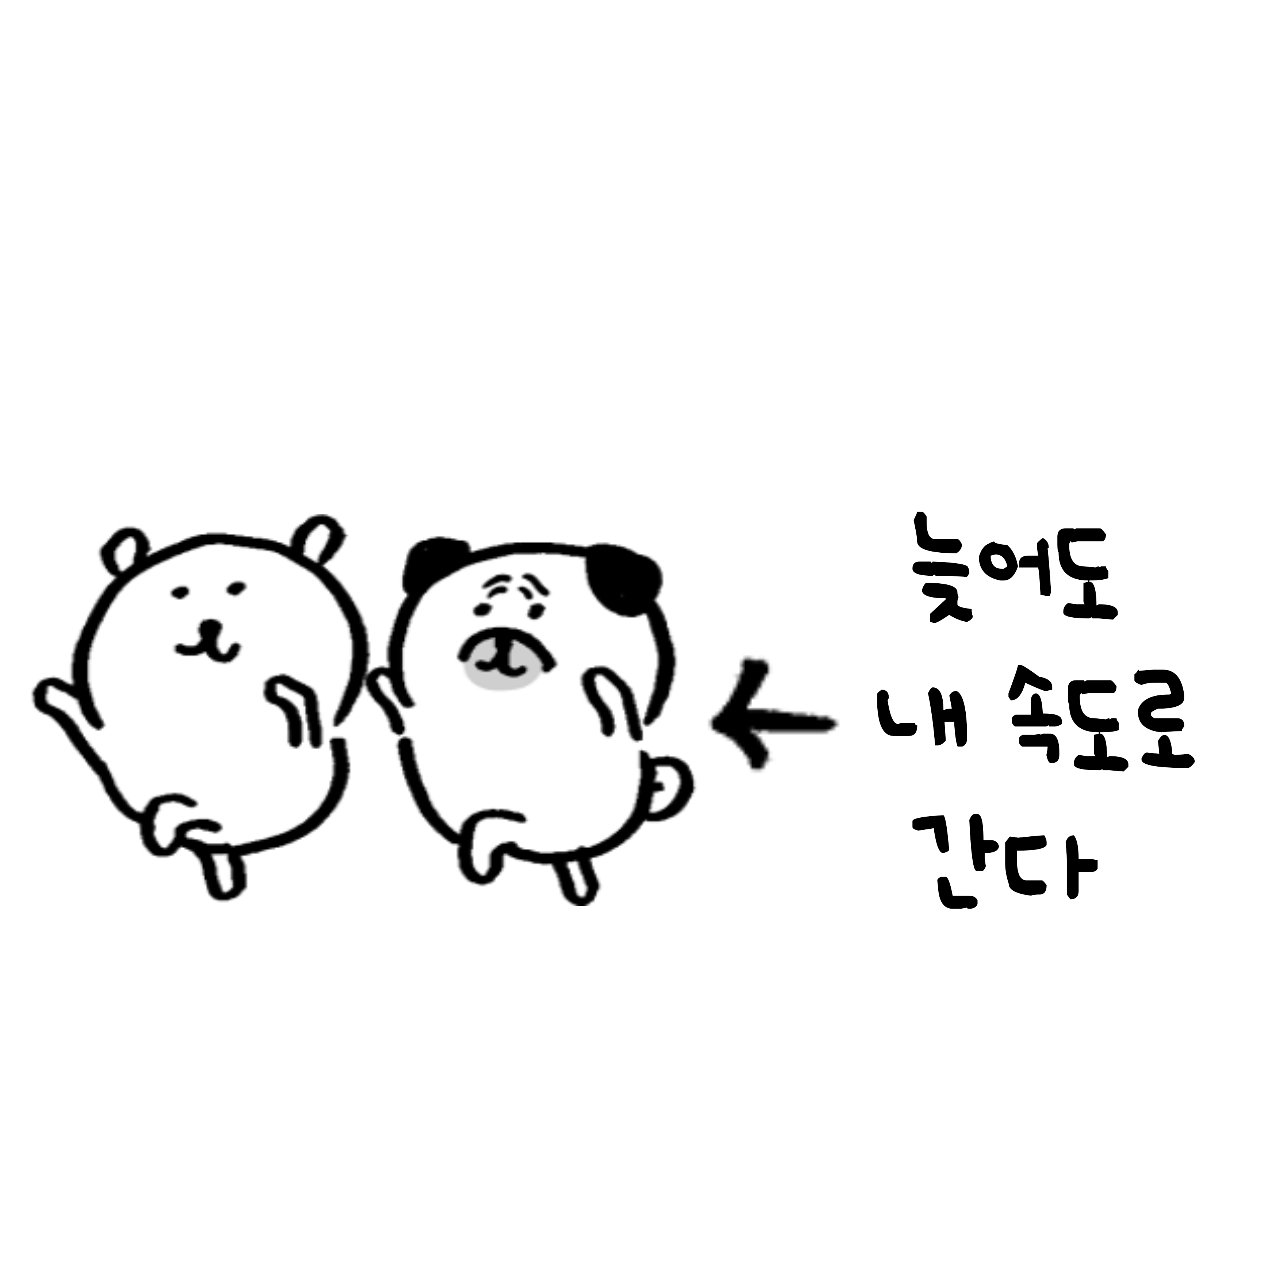 늦어도
내 속도로
간다